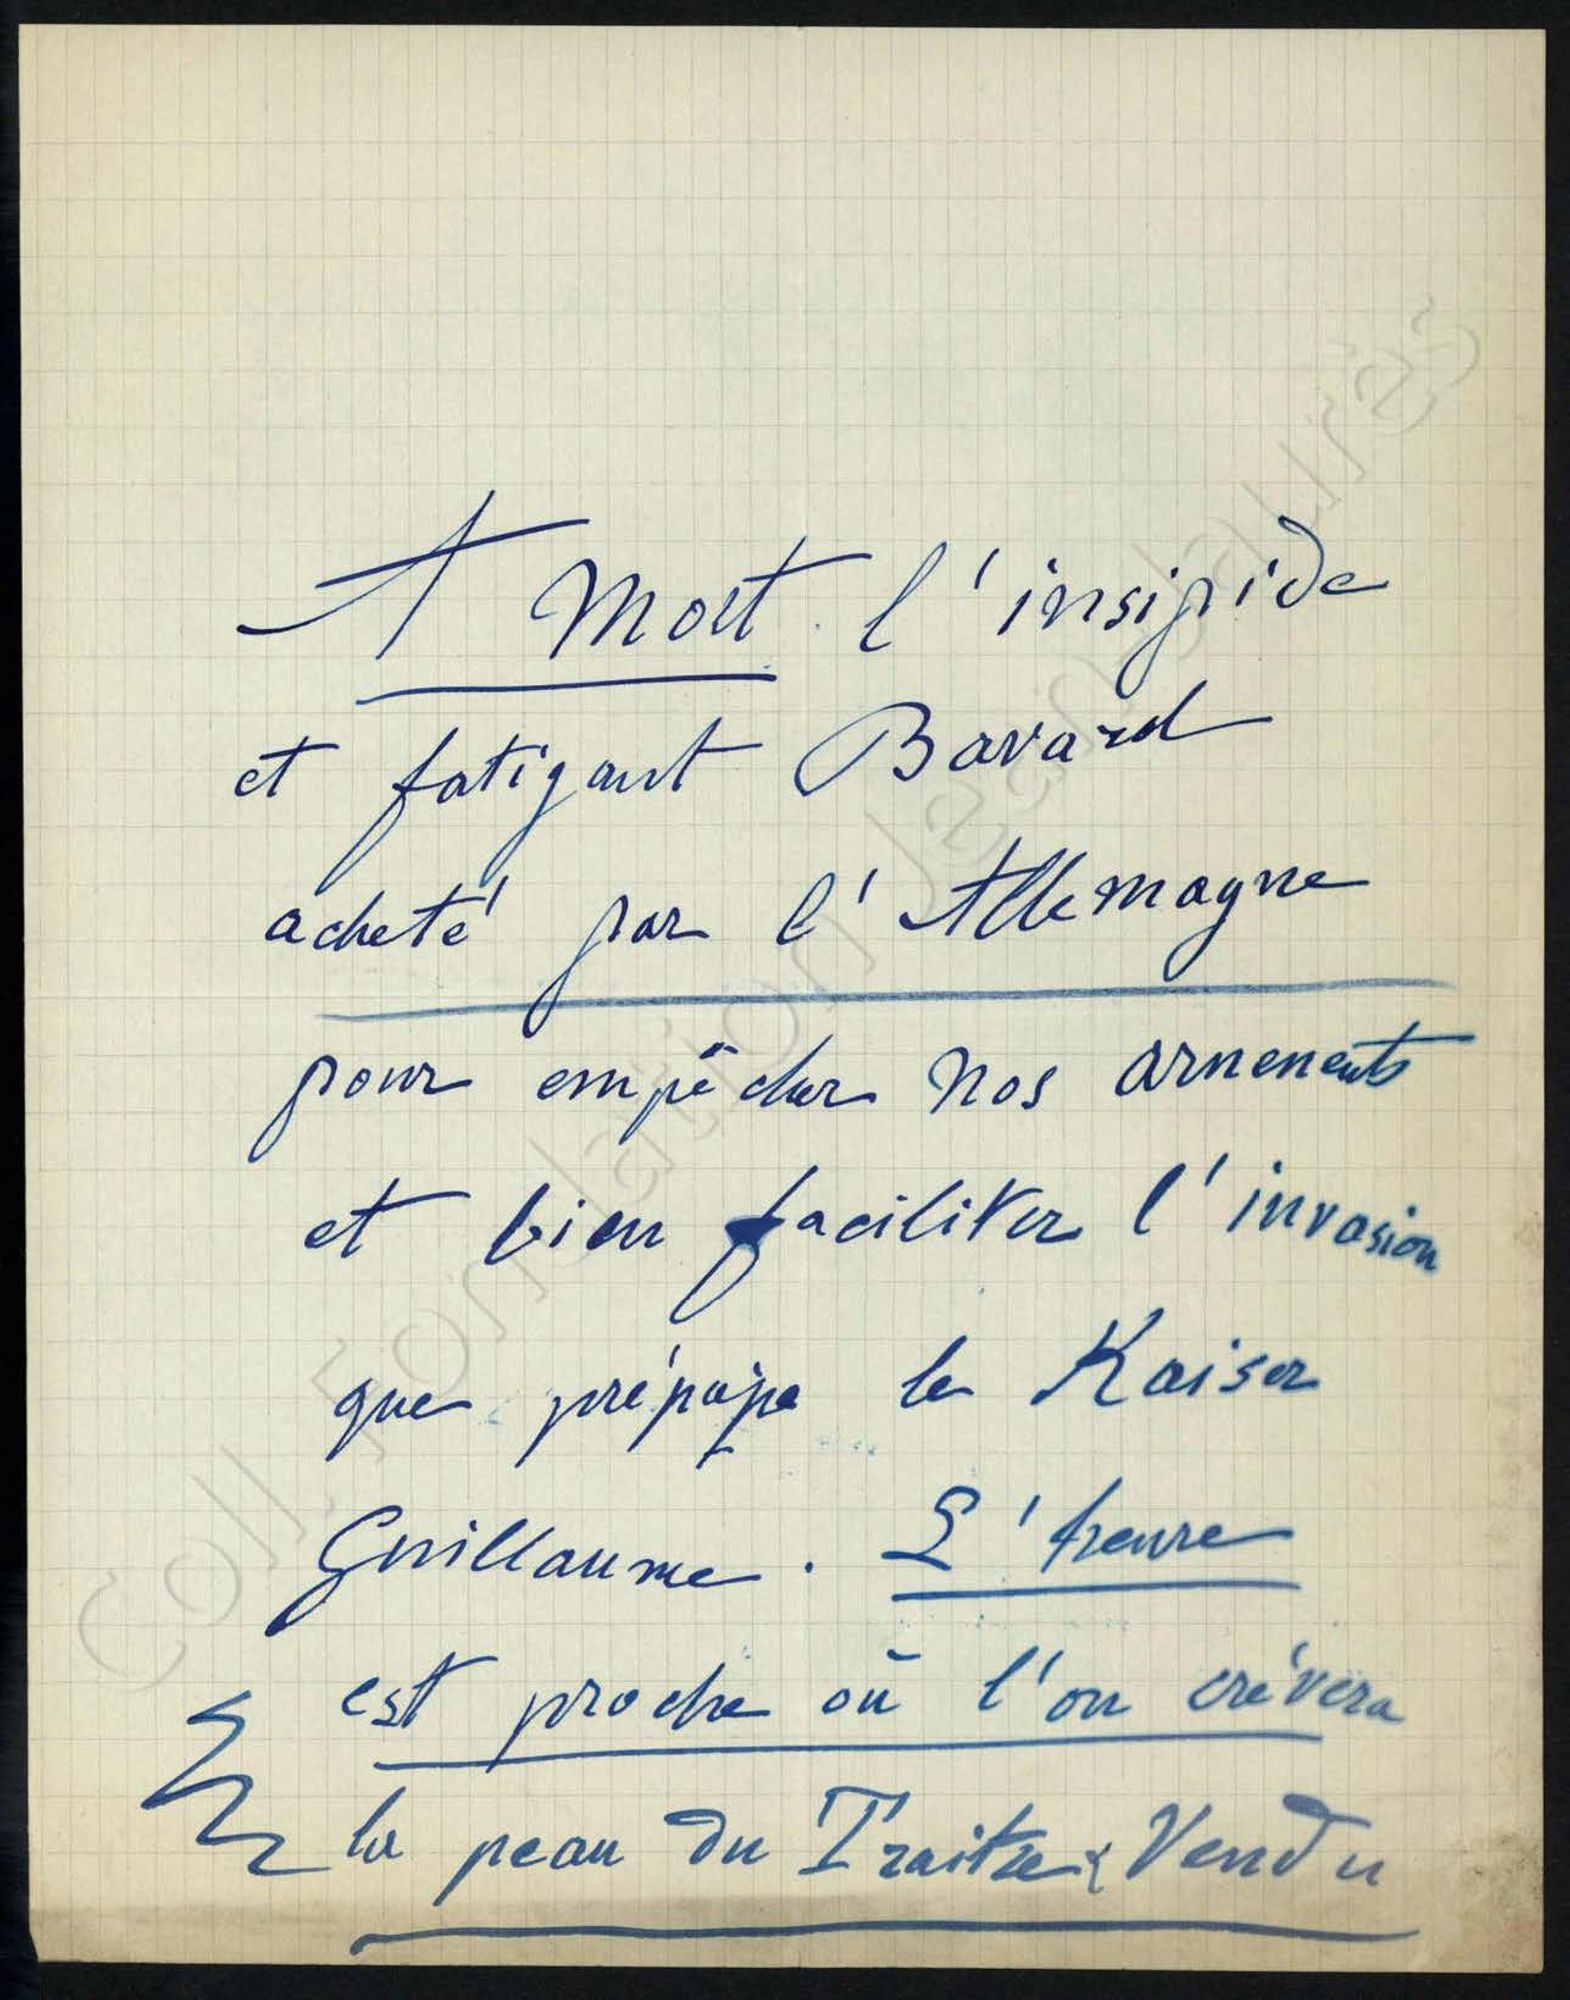 A Mort l'insipide
et fatigant Bavard
acheté par l'Allemagne
pour empêcher nos armements
et bien faciliter l'invasion
que prépare le Kaiser
Guillaume. L'heure
est proche où l'on crévera
la peau du Traitre & Vendu
Coll. Fondation Jean Jaurès